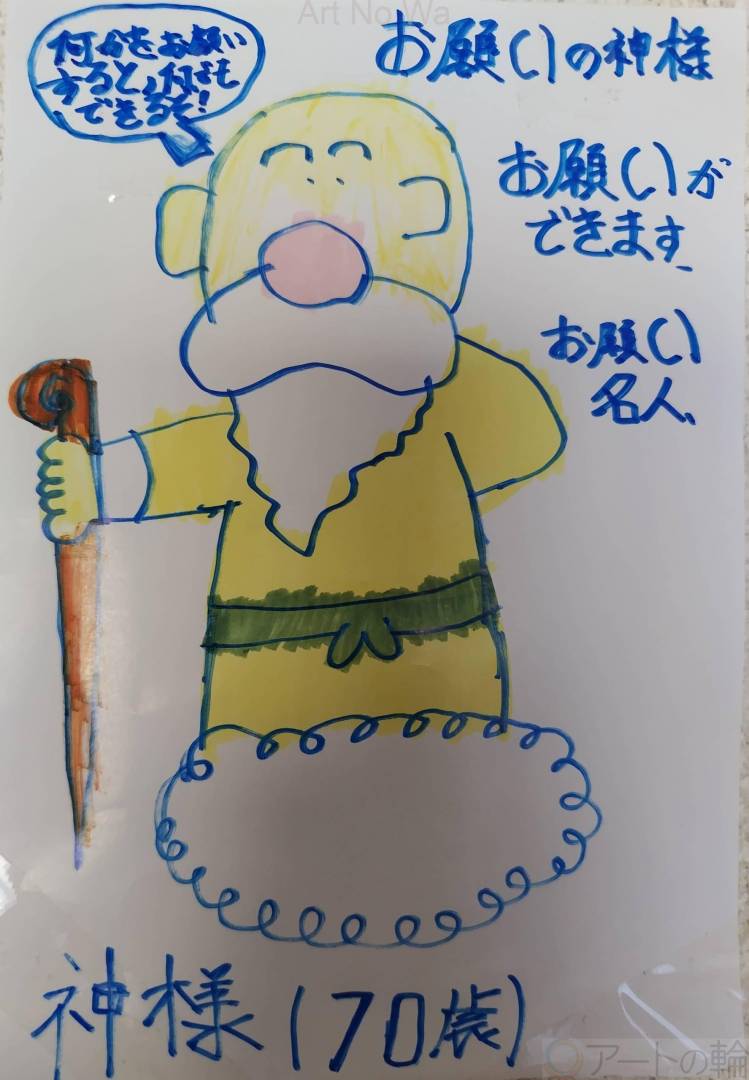 Art No Wa
お願いの神様
何かをお願い
すると、何でも
できるぞ!
お願いが
できます
お願い
名人
神様(70歳)
アートの輪